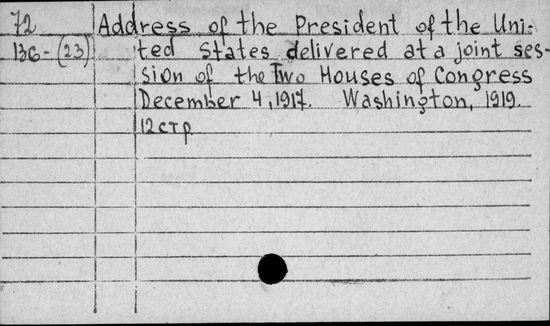 72 Address of the President of the Uni-
136-(23) ted States delivered at a joint ses-
sion of the Two Houses of Congress
December 4, 1917. Washington, 1919.
12 стр